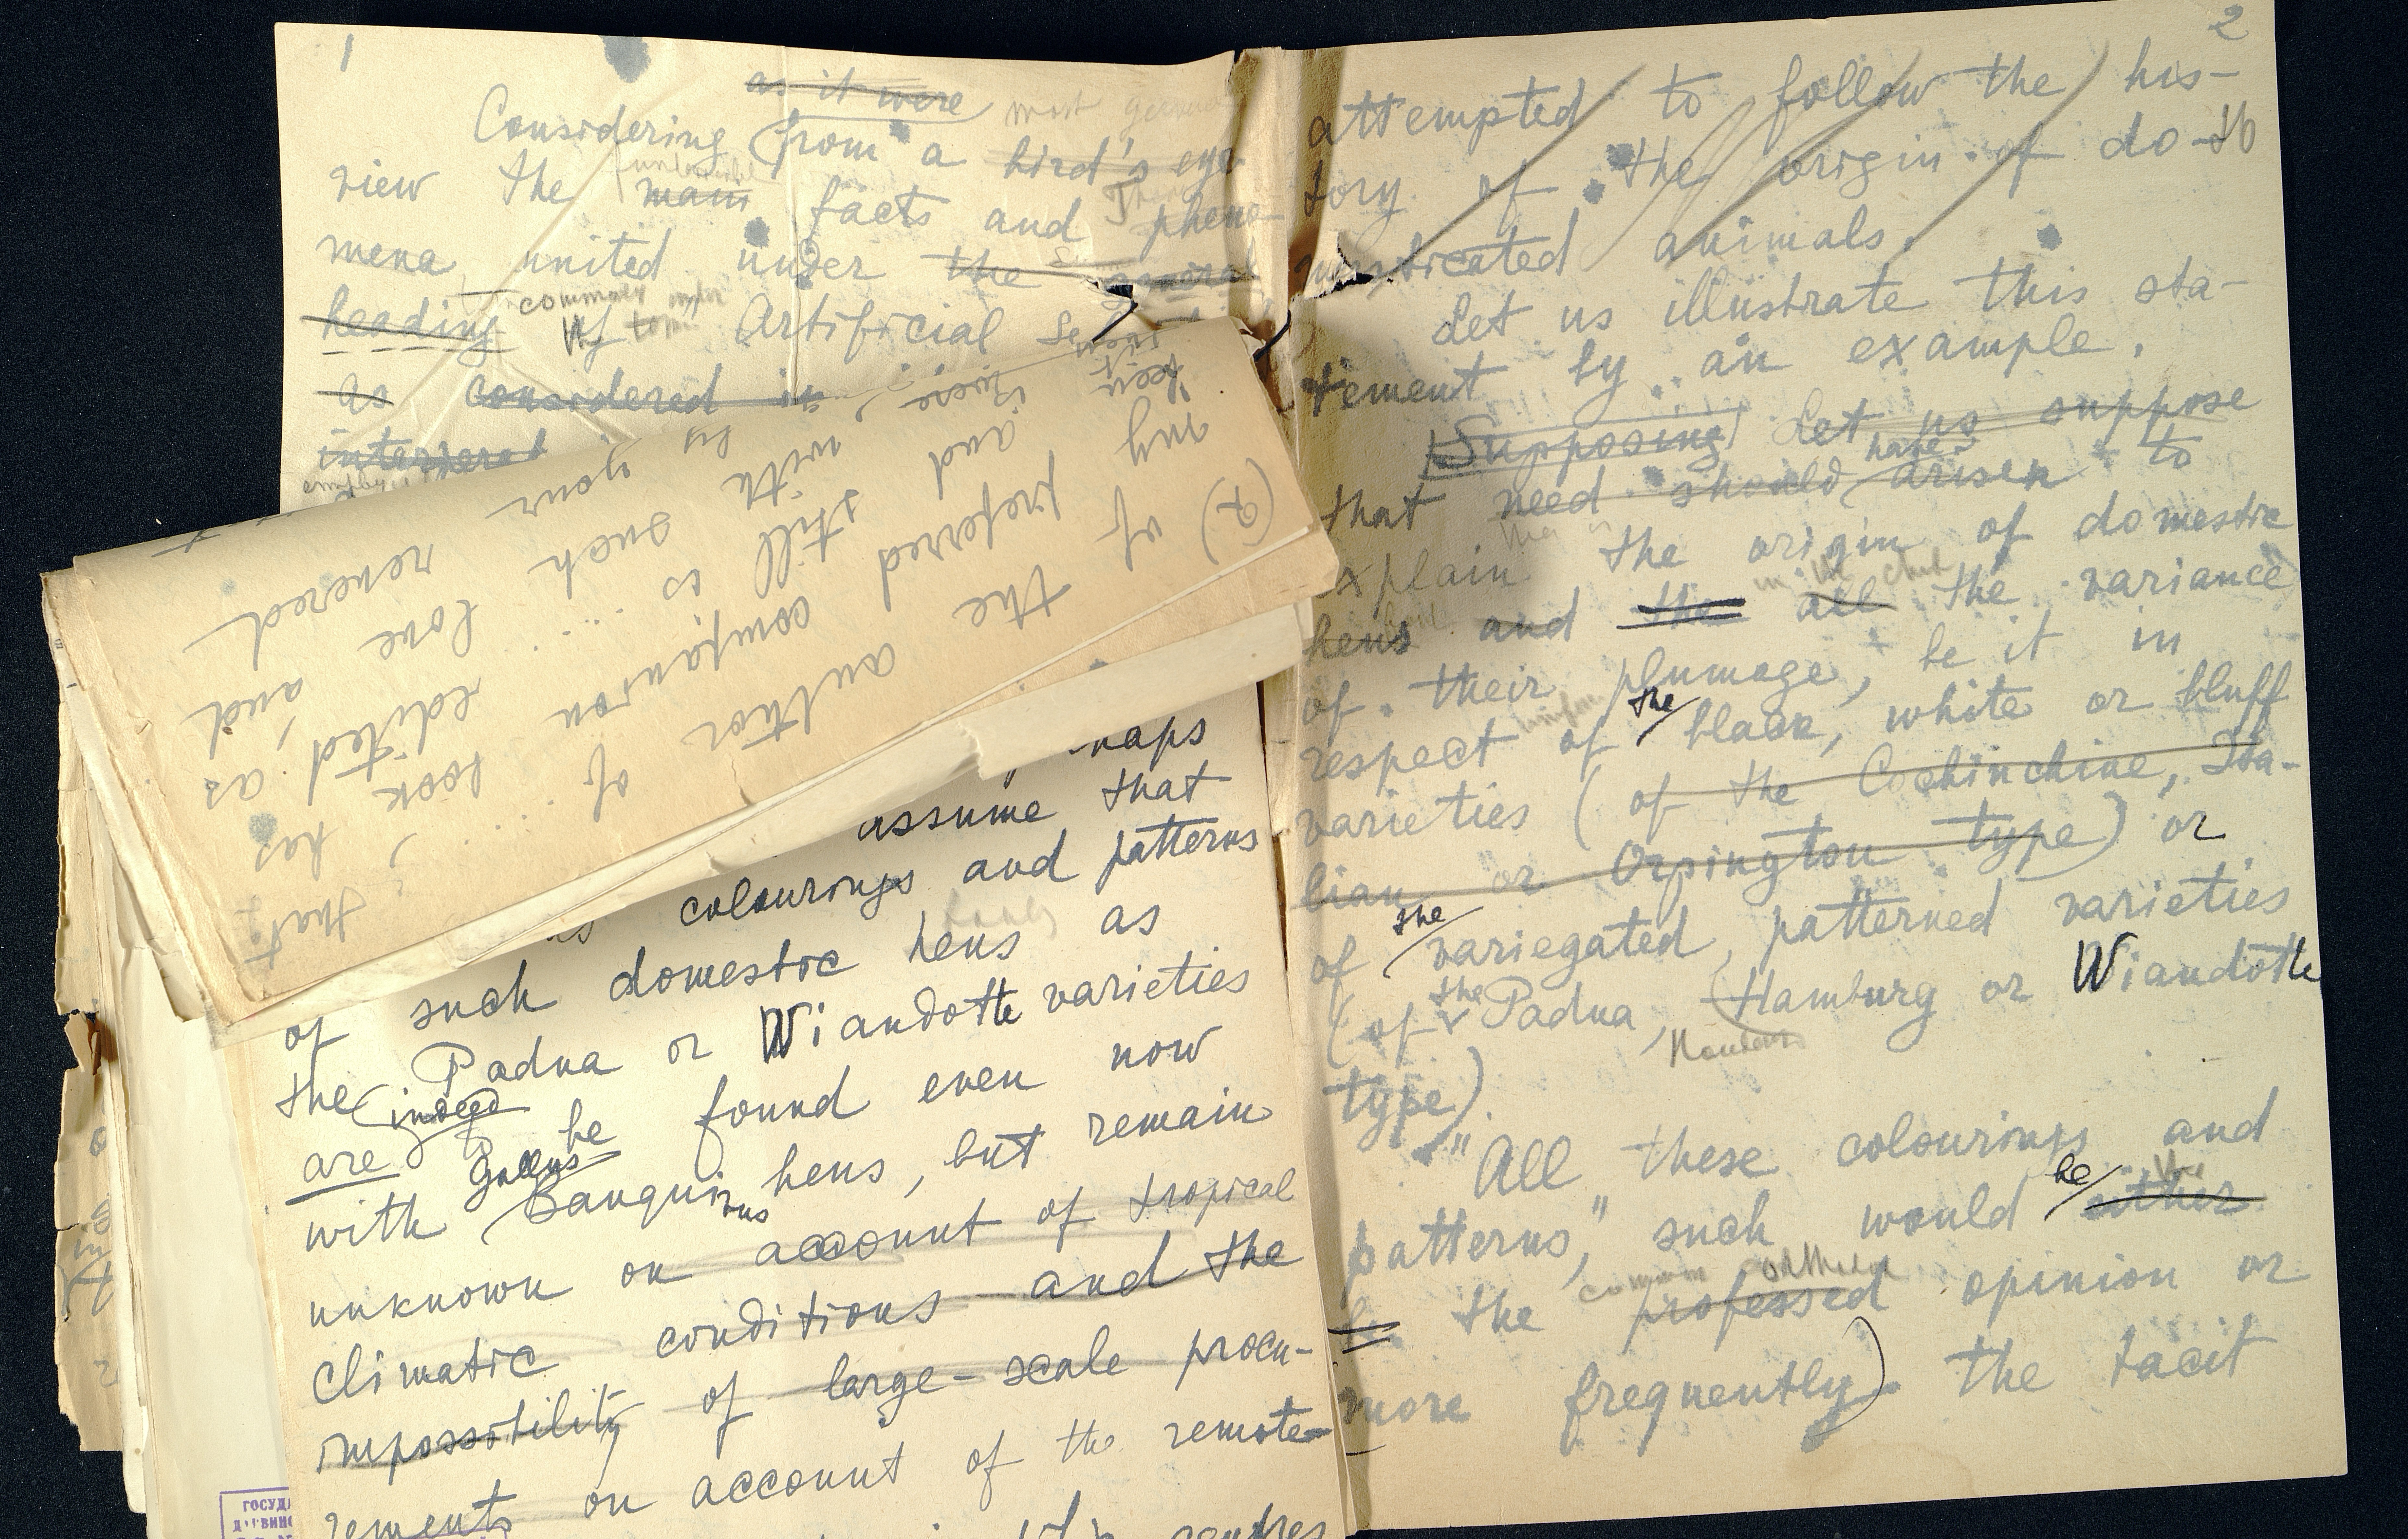 1
as it were most
Considering from a bird's eye
view the main facts and pheno
mena united under the general
common under
heading of Artificial
as considered in
(2) of the author of
my preferred companion look, has
and still is such edited, as
with by your love and
revered
that,
assume that
colourings and patterns
of such domestic hens as
the Padua or Wiandotte varieties
indeed
are be found even now
Gallus
with Banquirus hens, but remain
unknown on account of tropical
climatic conditions and the
impossibility of large-scale procu-
rements on account of the remote-
ГОСУДА
2
attempted to follow the his-
tory of the origin of do-
mesticated animals.
Let us illustrate this sta-
tement by an example.
Supposing Let us suppose
have
that need should arisen to
explain the origin of domestic
in the
hens and the all the variance
of their plumage, be it in
the
respect of black, white or bluff
varieties (of the Cochinchine, Ita-
lian or Orpington type) or
the
of variegated, patterned varieties
the
(of Padua, Hamburg or Wiandotte
Houdan
type).
"All these colourings and
be the
patterns," such would either
common
be the professed opinion or
more frequently) the tacit